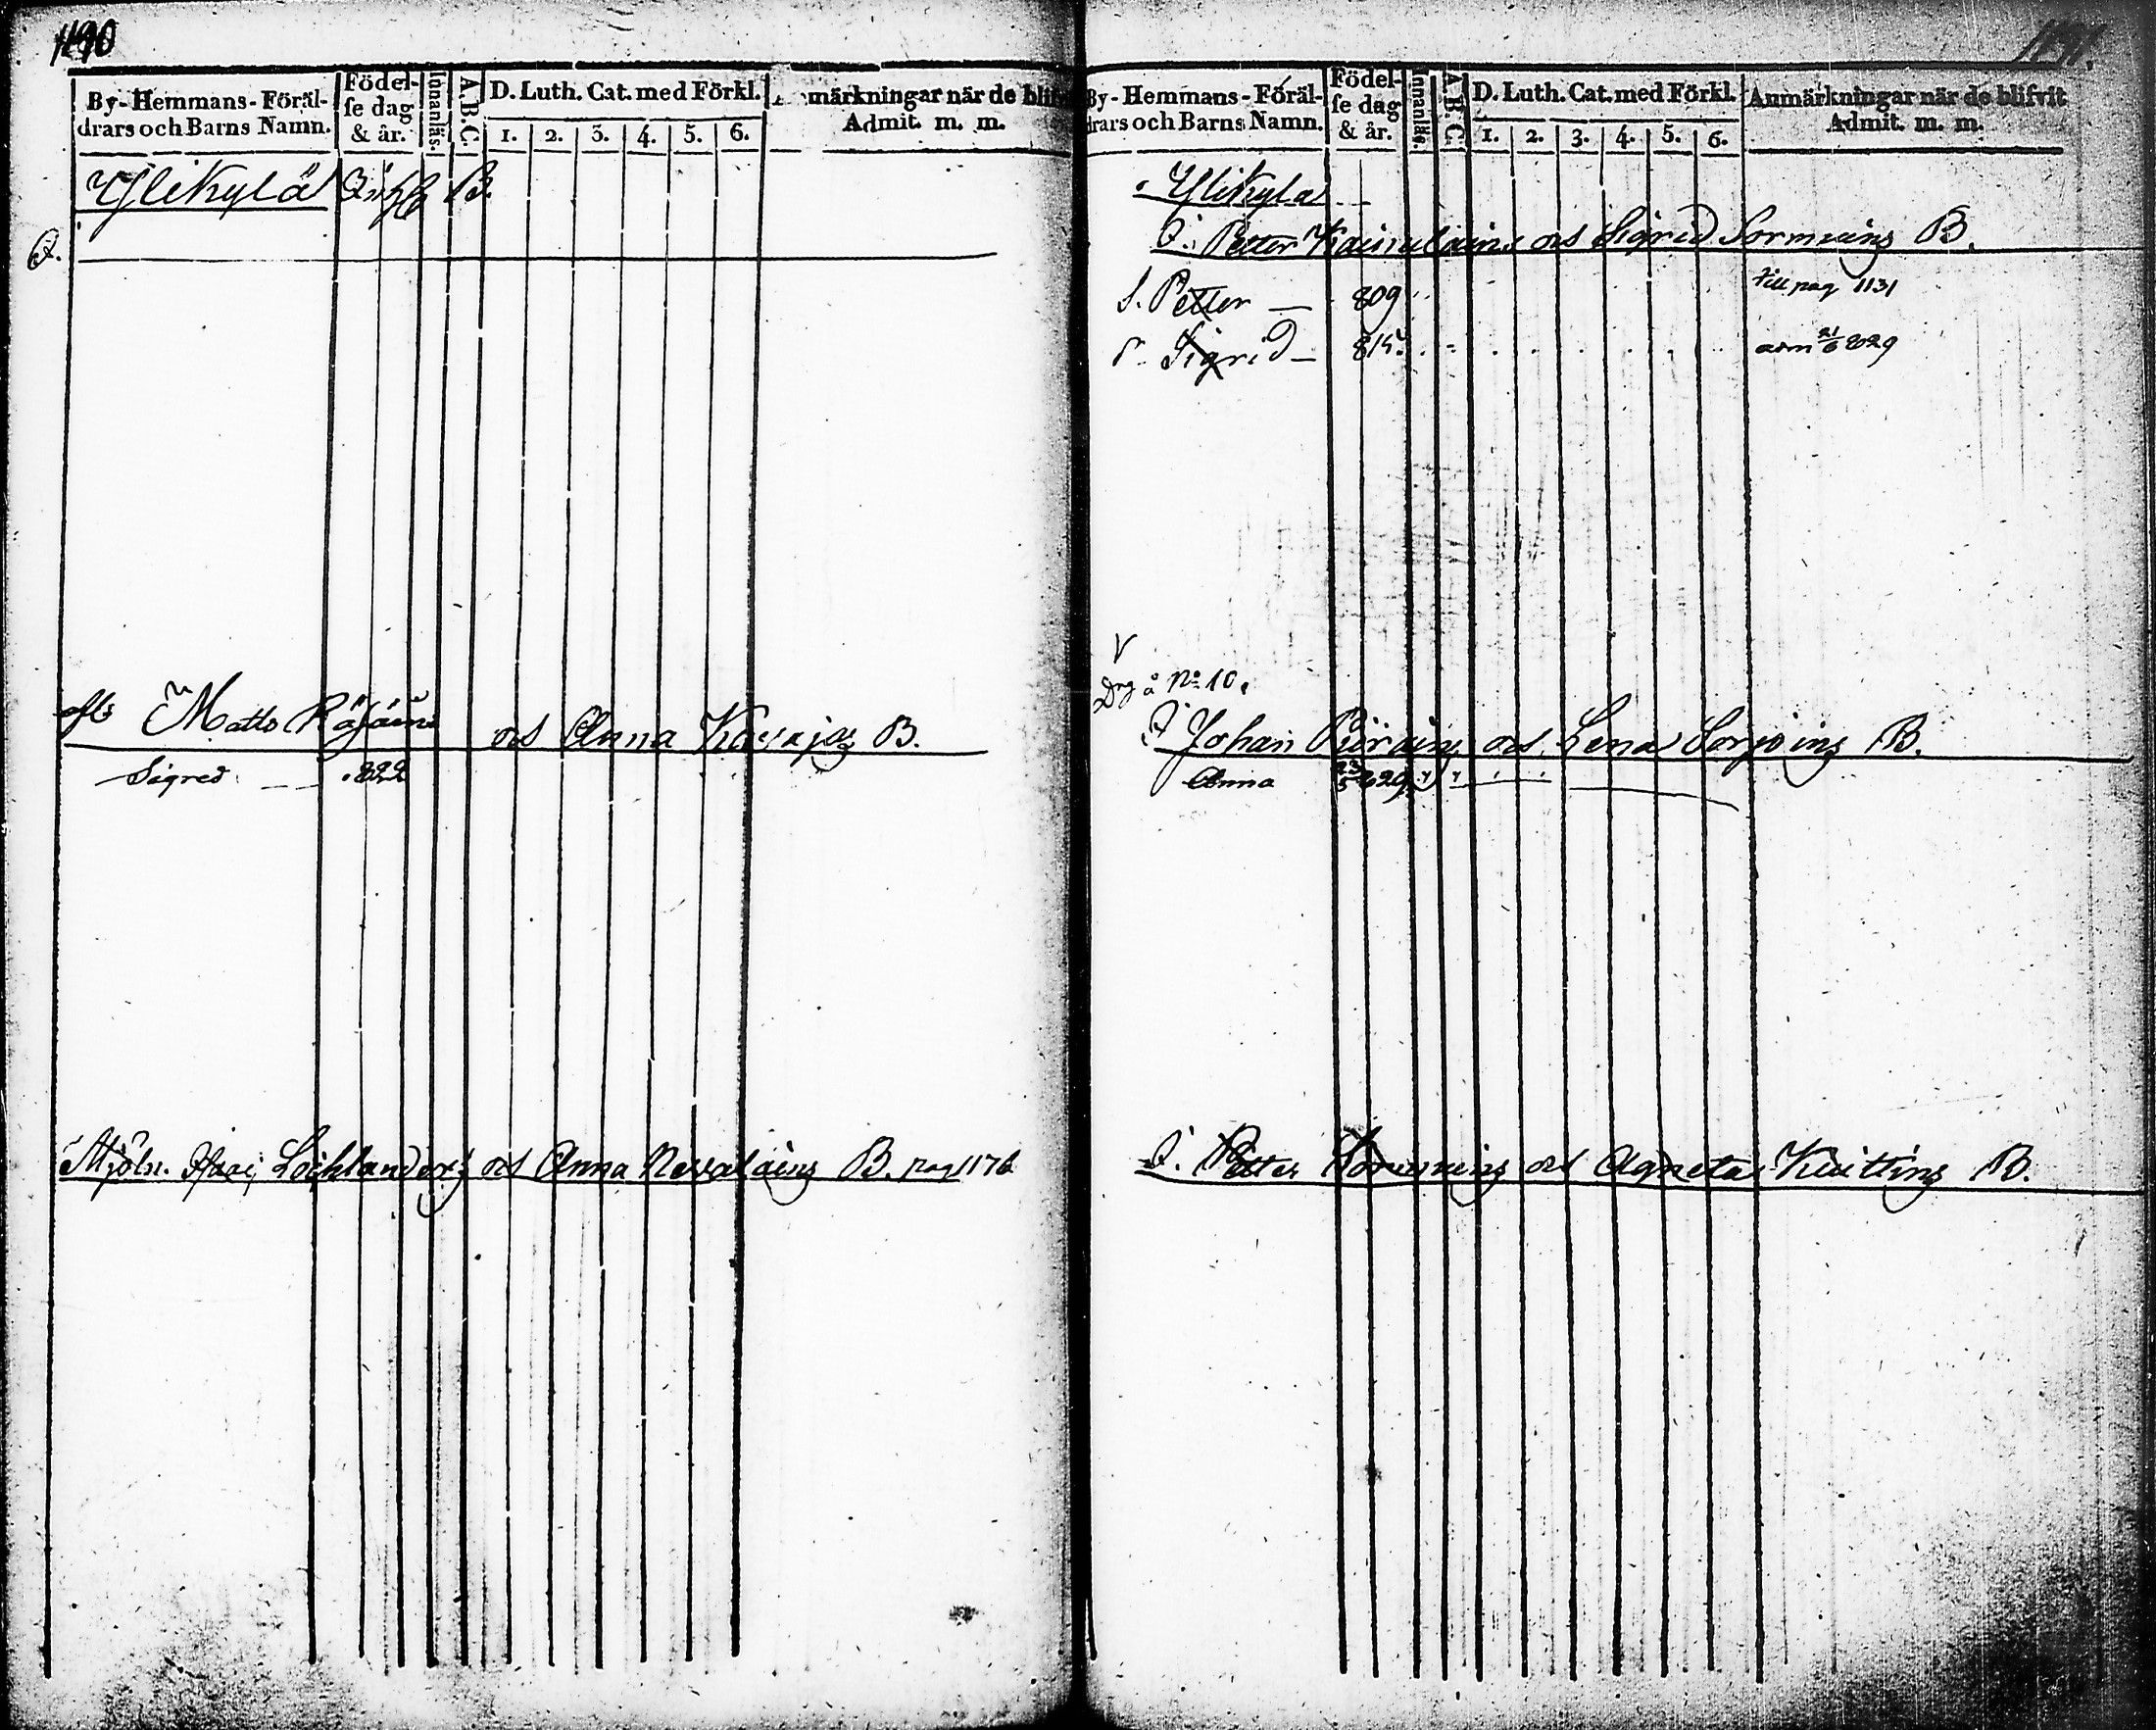 1190
By-Hemmans-Föräl-
drars och Barns Namn.
Födel-
ſe dag
& år.
Innanläs.
A.B.C.
D. Luth. Cat. med Förkl.
1. 2. 3. 4. 5. 6.
märkningar när de blifv
Admit. m. m.
Ylikylä B.
Q.
Matts Räsäin och Anna B.
Sigred 822
Mjöln. och Anna B. pag 1176
1191.
By-Hemmans-Föräl-
drars och Barns Namn.
Födel-
ſe dag
& år.
Innanläs.
A.B.C.
D. Luth. Cat. med Förkl.
1. 2. 3. 4. 5. 6.
Anmärkningar när de blifvit
Admit. m. m.
Ylikyla
Q. Petter Kainulains och Sigrid Sormuins B.
S. Petter 809 till pag 1131
Sigrid 815 adm 21/6 829
V
å No 10.
Johan Piirains och Lena B.
Anna 829
Q. Petter och Agneta Kuittins B.